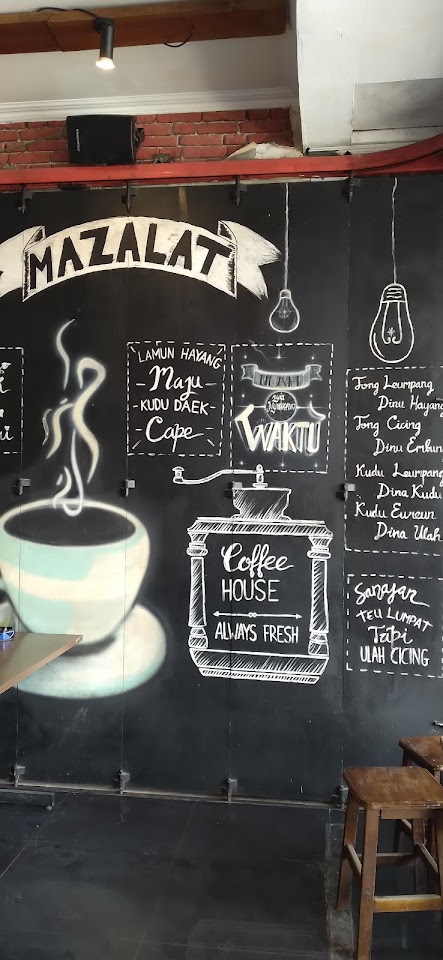 MAZALAT
LAMUN HAYANG
Maju
KUDU DAEK
Cape
WAKTU
Tong Leumpang
Dinu Hayang
Tong Cicing
Dinu Embung
Kudu Leumpang
Dina Kudu
Kudu Eureun
Dina Ulah
Coffee
HOUSE
ALWAYS FRESH
Sanajan
TEU LUMPAT
Tapi
ULAH CICING